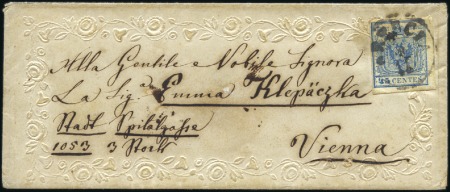 Alla Gentile e Nobile Signora
La Sig.ra Emma Klepäczka
Stadt Spitalgasse
1053 3 Stock
Vienna
45 CENTES